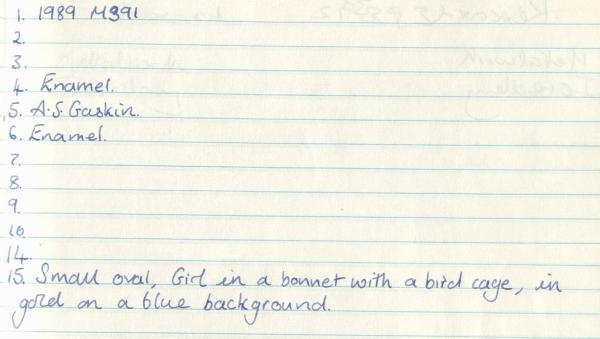 1. 1989 M391
2.
3.
4. Enamel.
5. A.S. Gaskin.
6. Enamel.
7.
8.
9.
10.
14.
15. Small oval, Girl in a bonnet with a bird cage, in
gold on a blue background.